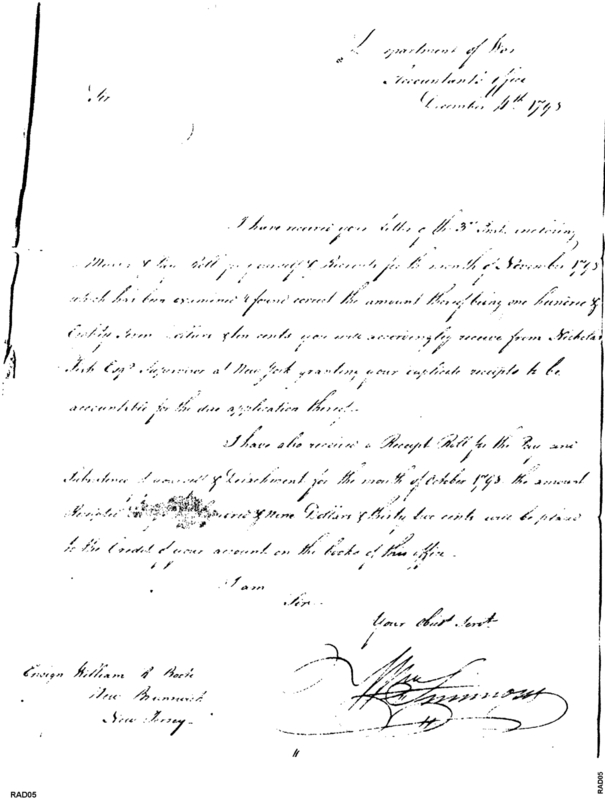 Department of War
Accountant's Office
December 4th 1795
Sir
I have received your Letter of the 3d Inst. enclosing
a Muster & Pay Roll for yourself & Recruits for the month of November 1795
which has been examined & found correct the amount thereof being one hundred &
Dollars & ten cents you will accordingly receive from Nicholas
Fish Esqr. Supervisor at New York granting your duplicate receipts to be
accountable for the due application thereof.
I have also received a Receipt Roll for the Pay and
Subsistence of yourself & Detachment for the month of October 1795 the amount
Receipted & nine Dollars & thirty two cents will be placed
to the Credit of your account on the books of this office.
I am
Sir
Your Obedt Servt
Wm Simmons
Ensign William
New Brunswick
New Jersey.
RAD05
RAD05